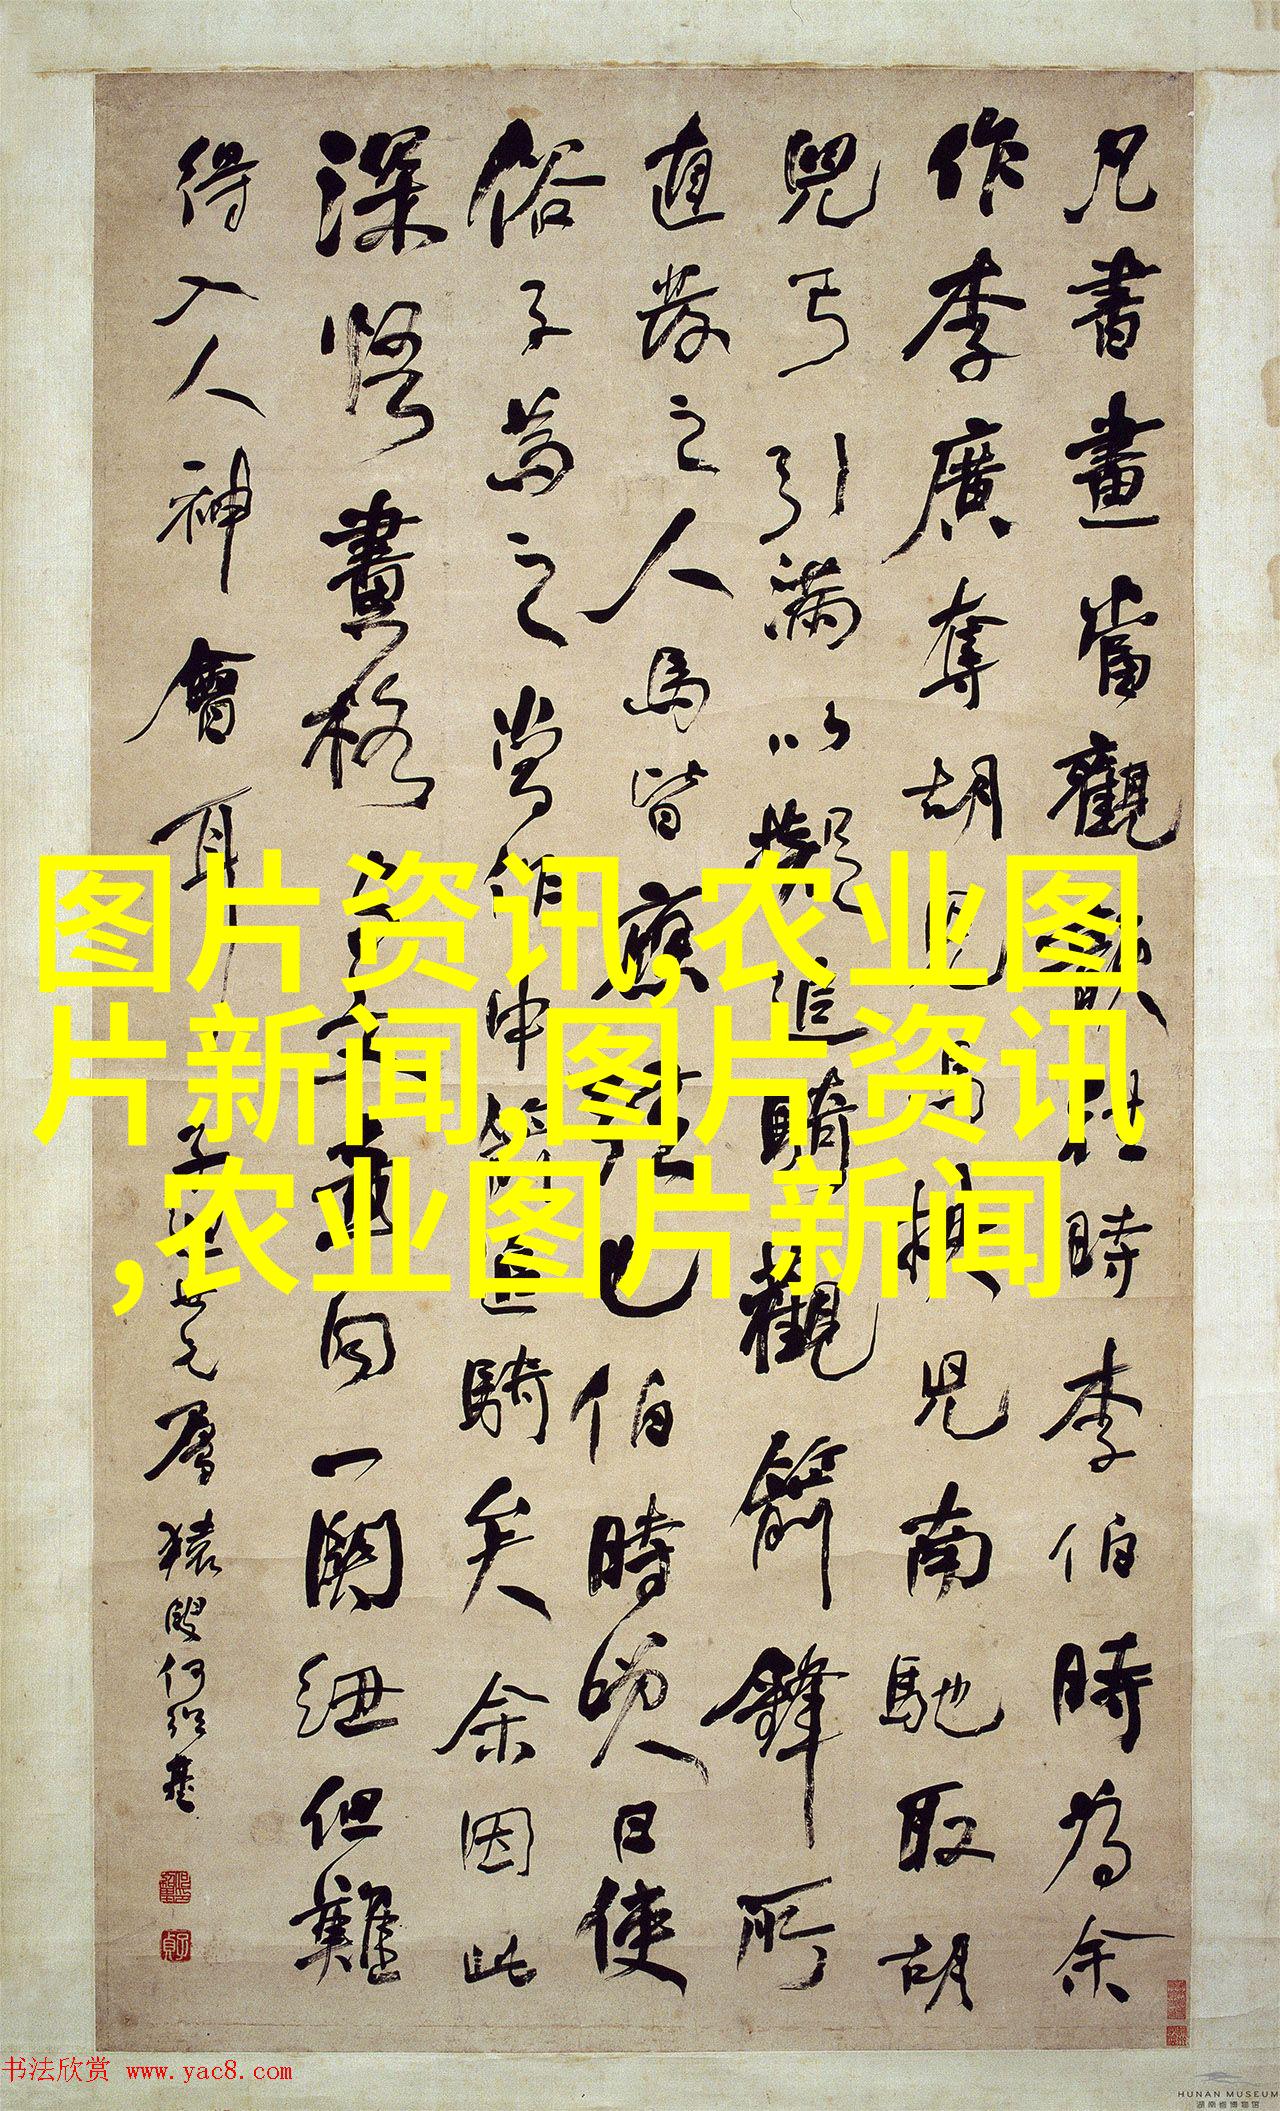 凡書畫當觀韻往時李伯時為余
作李廣奪胡兒馬挾兒南馳取胡
兒弓引滿以擬追騎觀箭鋒所
直發之人馬皆應弦也伯時笑曰使
俗子為之當作中箭追騎矣余因此
深悟畫格此與文章同一關紐但難
得入人神會耳 世兄屬 猿叟何紹基
图片资讯,农业图
片新闻,图片资讯
,农业图片新闻
书法欣赏 www.yac8.com
HUNAN MUSEUM
湖南省博物馆